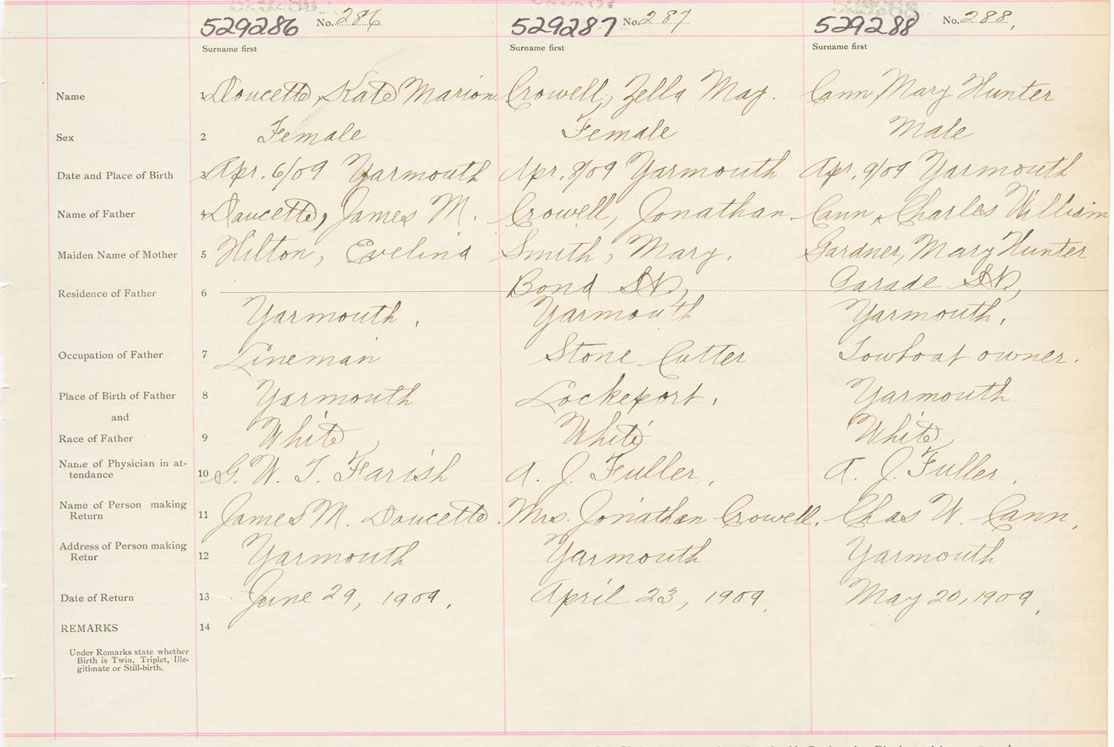 529286 No. 286
529287 No. 287
529288 No. 288.
Surname first
Surname first
Surname first
Name 1 Doucette, Kate Marion Crowell, Zella May. Cann, Mary Hunter
Sex 2 Female Female Male
Date and Place of Birth 3 Apr. 6/09 Yarmouth Apr. 9/09 Yarmouth Apr. 9/09 Yarmouth
Name of Father 4 Doucette, James M. Crowell, Jonathan Cann, Charles William
Maiden Name of Mother 5 Hilton, Evelina Smith, Mary. Gardner, Mary Hunter
Residence of Father 6 Bond St, St,
Yarmouth. Yarmouth Yarmouth.
Occupation of Father 7 Lineman Stone Cutter Towboat owner.
Place of Birth of Father 8 Yarmouth Lockeport. Yarmouth
and
Race of Father 9 White, White White,
Name of Physician in at-
tendance 10 G. W. T. Farish A. J. Fuller. A. J. Fuller.
Name of Person making
Return 11 James M. Doucette. Mrs. Jonathan Crowell. Chas W. Cann,
Address of Person making
Retur 12 Yarmouth Yarmouth Yarmouth
Date of Return 13 June 29, 1909. April 23, 1909. May 20, 1909.
REMARKS 14
Under Remarks state whether
Birth is Twin, Triplet, Ille-
gitimate or Still-birth.